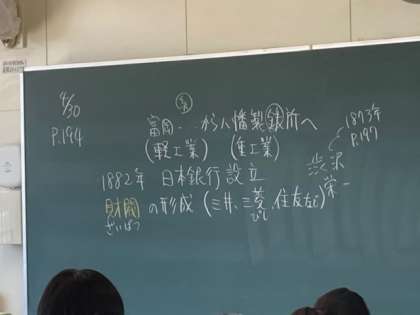 4/30
P.194
富岡...から八幡製鉄所へ
(軽工業) (重工業)
1873年
P.197
渋沢栄一
1882年 日本銀行設立
財閥の形成(三井、三菱、住友など)
ざいばつ
びし